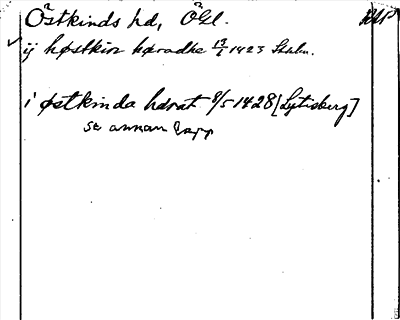 Östkinds hd, Ögl.
ij høstkin hæradhe 19/2 1423 Sthlm.
i østkinda hærat 8/5 1428 [Lytisberg]
se annan lapp